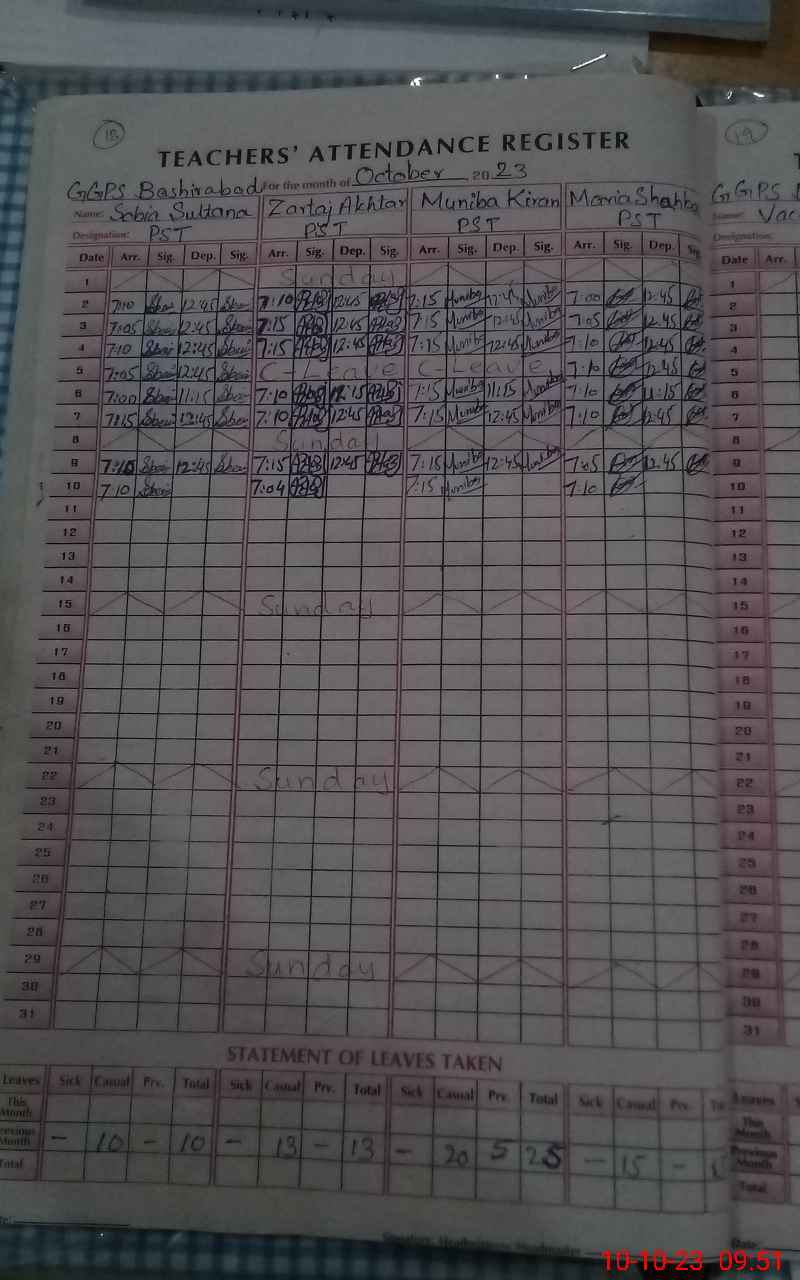 18
19
TEACHERS' ATTENDANCE REGISTER
GGPS Bashirabad For the month of October 2023
GGPS
Name: Sobia Sultana Zartaj Akhtar Muniba Kiran Maria
Name:
Designation: PST PST PST PST
Designation:
Date Arr. Sig. Dep. Sig. Arr. Sig. Dep. Sig. Arr. Sig. Dep. Sig. Arr. Sig. Dep. Sig.
Date Arr.
1 Sunday
2 7:10 12:45 7:10 12:45 7:15 Muniba 12:45 Muniba 7:00 12:45
3 7:05 12:45 7:15 12:45 7:15 Muniba 12:45 Muniba 7:05 12:45
4 7:10 12:45 7:15 12:45 7:15 Muniba 12:45 Muniba 7:10 12:45
5 7:05 12:45 C-Leave C-Leave 7:10 12:45
6 7:00 11:15 7:10 11:15 7:15 Muniba 11:15 Muniba 7:10 11:15
7 7:15 12:45 7:10 12:45 7:15 Muniba 12:45 Muniba 7:10 12:45
8 Sunday
9 7:10 12:45 7:15 12:45 7:15 Muniba 12:45 Muniba 7:05 12:45
10 7:10 7:04 7:15 Muniba 7:10
11
12
13
14
15 Sunday
16
17
18
19
20
21
22 Sunday
23
24
25
26
27
28
29 Sunday
30
31
1
2
3
4
5
6
7
8
9
10
11
12
13
14
15
16
17
18
19
20
21
22
23
24
25
26
27
28
29
30
31
STATEMENT OF LEAVES TAKEN
Leaves Sick Casual Prv. Total Sick Casual Prv. Total Sick Casual Prv. Total Sick Casual Prv.
This Month
Previous Month - 10 - 10 - 13 - 13 - 20 5 25 - 15 -
Total
Leaves
This Month
Previous Month
Total
Date:
10-10-23 09:51